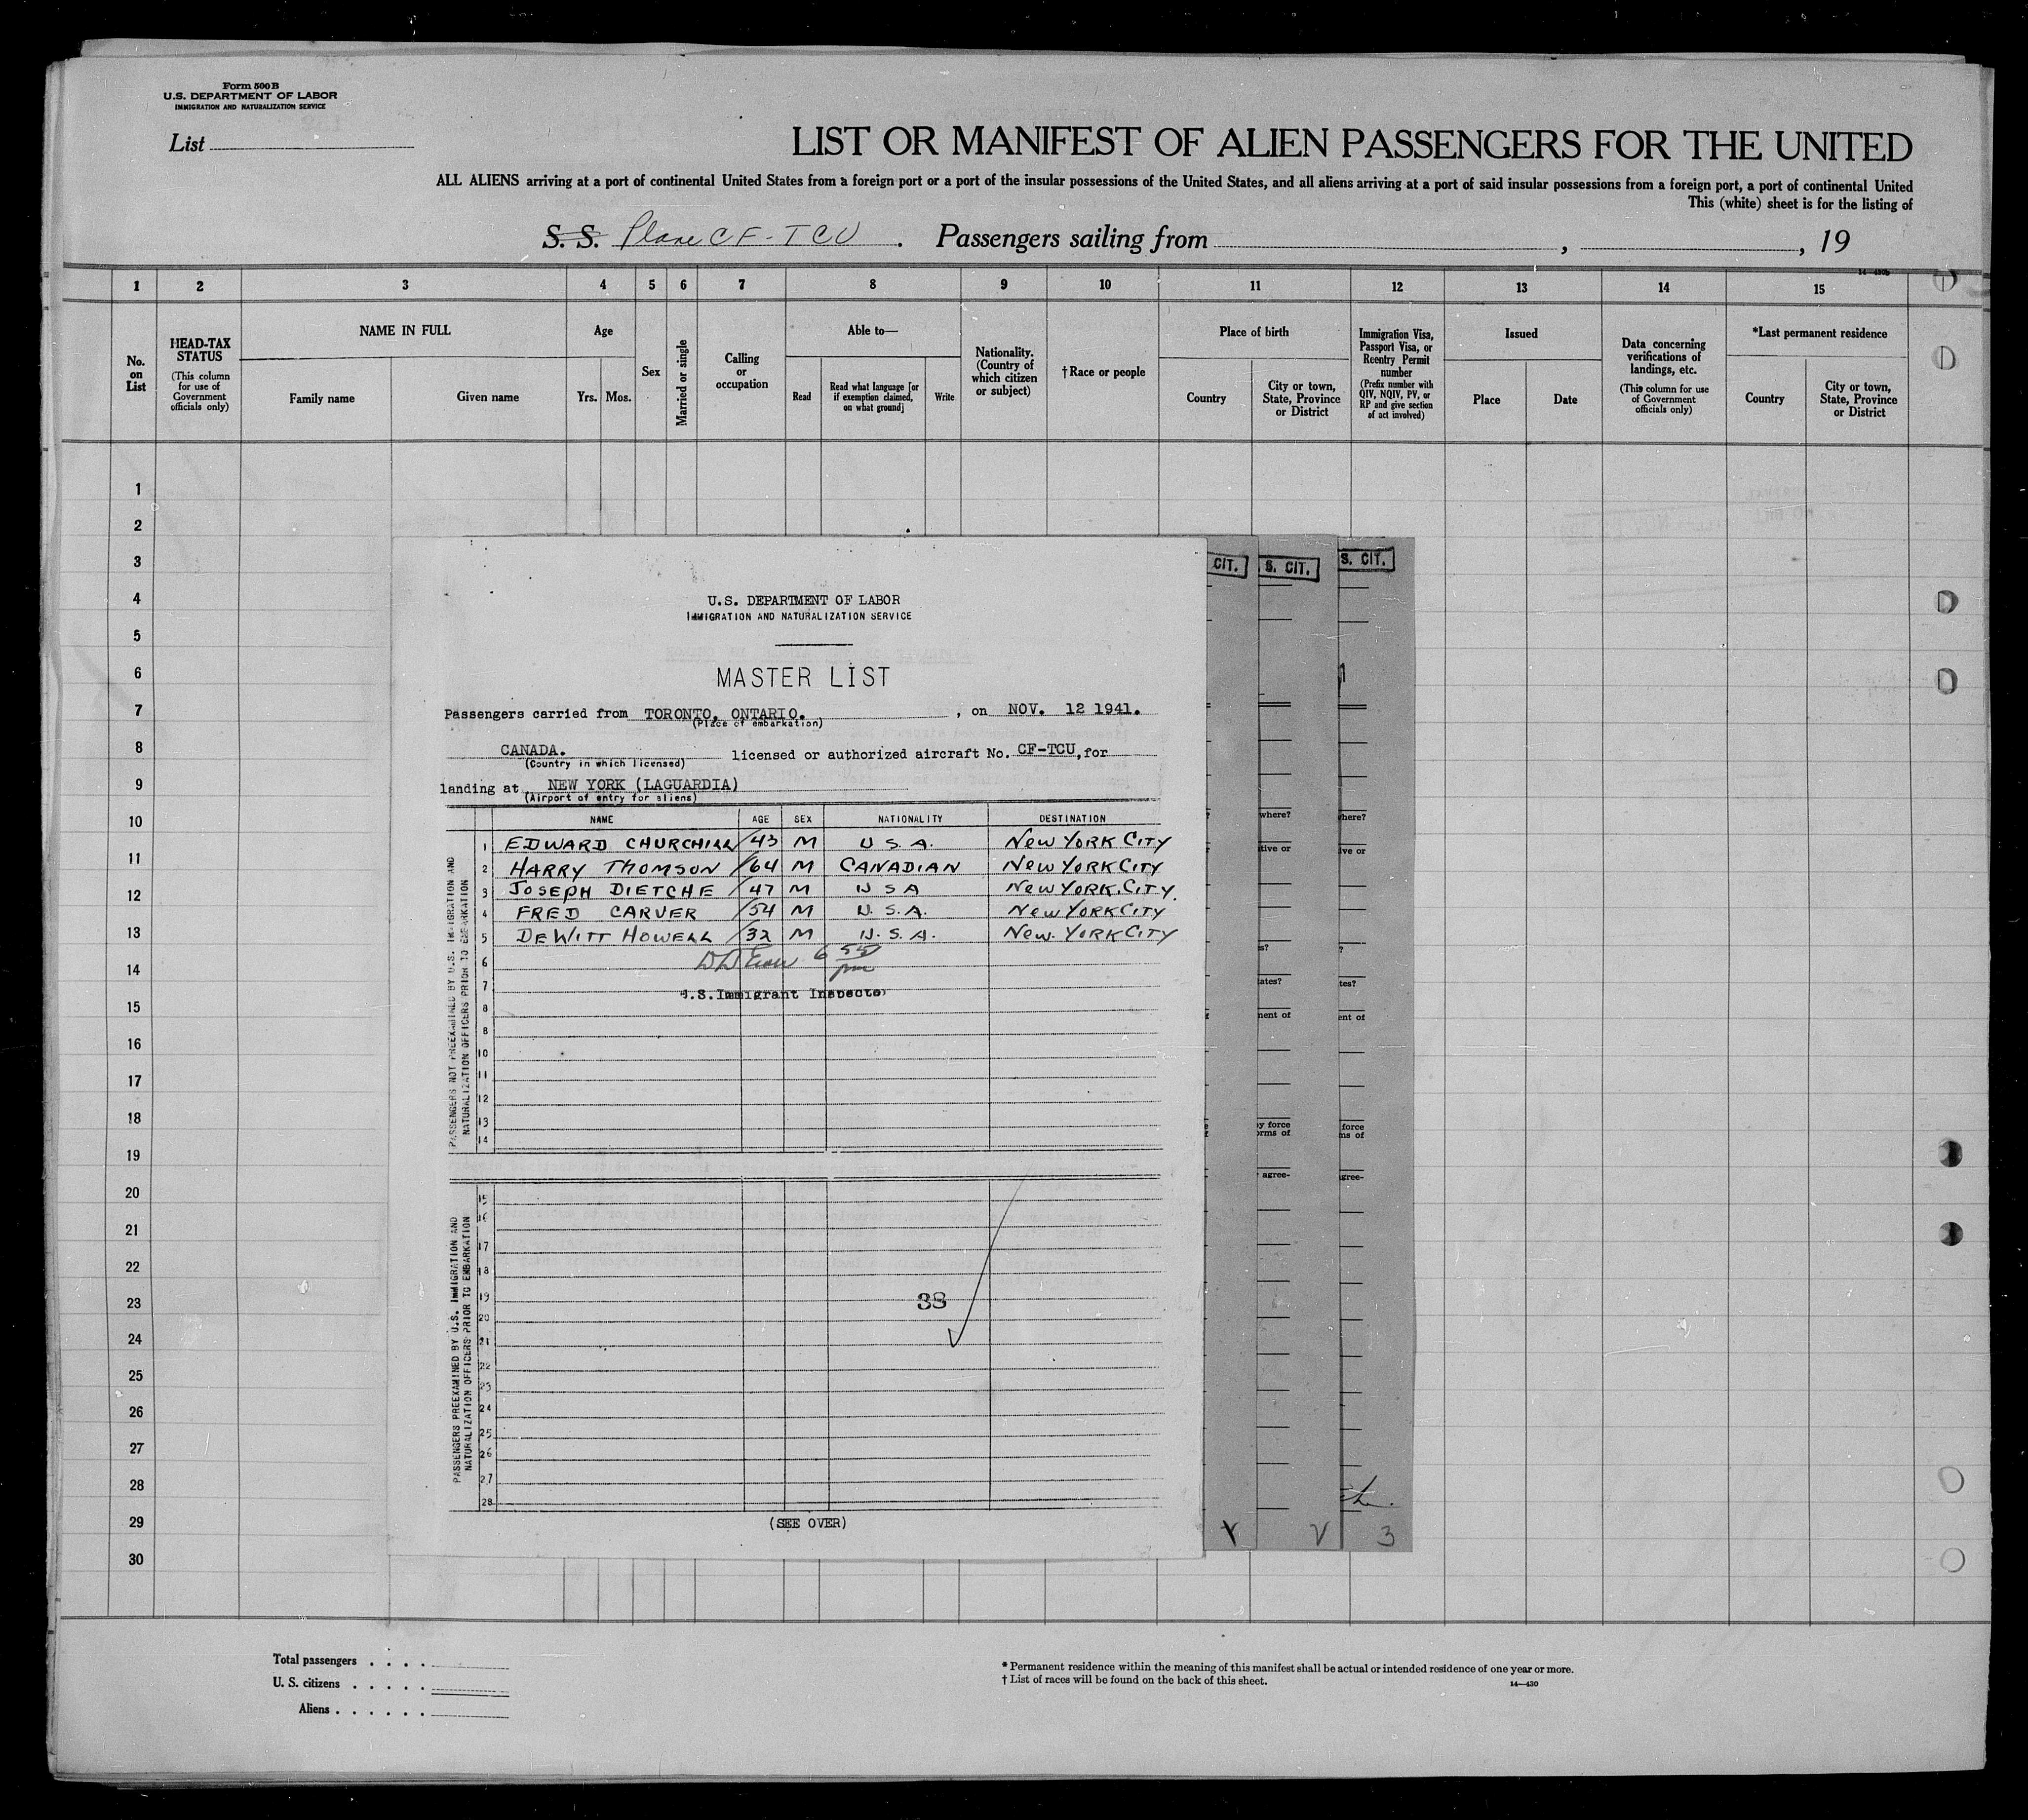 Form 500 B
U.S. DEPARTMENT OF LABOR
IMMIGRATION AND NATURALIZATION SERVICE
List
LIST OR MANIFEST OF ALIEN PASSENGERS FOR THE UNITED
ALL ALIENS arriving at a port of continental United States from a foreign port or a port of the insular possessions of the United States, and all aliens arriving at a port of said insular possessions from a foreign port, a port of continental United
This (white) sheet is for the listing of
S. S. Plane CF-TCU . Passengers sailing from , , 19
14—430b
1 2 3 4 5 6 7 8 9 10 11 12 13 14 15
No. on List
HEAD-TAX STATUS
(This column for use of Government officials only)
NAME IN FULL
Family name Given name
Age
Yrs. Mos.
Sex
Married or single
Calling or occupation
Able to—
Read
Read what language [or if exemption claimed, on what ground]
Write
Nationality. (Country of which citizen or subject)
†Race or people
Place of birth
Country
City or town, State, Province or District
Immigration Visa, Passport Visa, or Reentry Permit number
(Prefix number with QIV, NQIV, PV, or RP and give section of act involved)
Issued
Place Date
Data concerning verifications of landings, etc.
(This column for use of Government officials only)
*Last permanent residence
Country
City or town, State, Province or District
1
2
3
4
5
6
7
8
9
10
11
12
13
14
15
16
17
18
19
20
21
22
23
24
25
26
27
28
29
30
U.S. DEPARTMENT OF LABOR
IMMIGRATION AND NATURALIZATION SERVICE
MASTER LIST
Passengers carried from TORONTO, ONTARIO. , on NOV. 12 1941.
(Place of embarkation)
CANADA. licensed or authorized aircraft No. CF-TCU, for
(Country in which licensed)
landing at NEW YORK (LAGUARDIA)
(Airport of entry for aliens)
NAME AGE SEX NATIONALITY DESTINATION
PASSENGERS NOT PREEXAMINED BY U.S. IMMIGRATION AND
NATURALIZATION OFFICERS PRIOR TO EMBARKATION
1 EDWARD CHURCHILL /43 M U S A. NEW YORK CITY
2 HARRY THOMSON /64 M CANADIAN NEW YORK CITY
3 JOSEPH DIETCHE /47 M U S A NEW YORK. CITY.
4 FRED CARVER /54 M U. S. A. NEW YORK CITY
5 DEWITT HOWELL /32 M U. S. A. NEW. YORK CITY
6 6 55 pm
7 U.S. Immigrant Inspector
8
8
10
11
12
13
14
PASSENGERS PREEXAMINED BY U.S. IMMIGRATION AND
NATURALIZATION OFFICERS PRIOR TO EMBARKATION
15
16
17
18
19 38
20
21
22
23
24
25
26
27
28
(SEE OVER)
CIT. S. CIT. S. CIT.
where? here?
tive or ive or
s? ?
ates? tes?
ment of ent of
y force force
orms of ms of
agree- gree-
V 3
Total passengers . . . .
U. S. citizens . . . . .
Aliens . . . . . .
* Permanent residence within the meaning of this manifest shall be actual or intended residence of one year or more.
† List of races will be found on the back of this sheet.
14—430